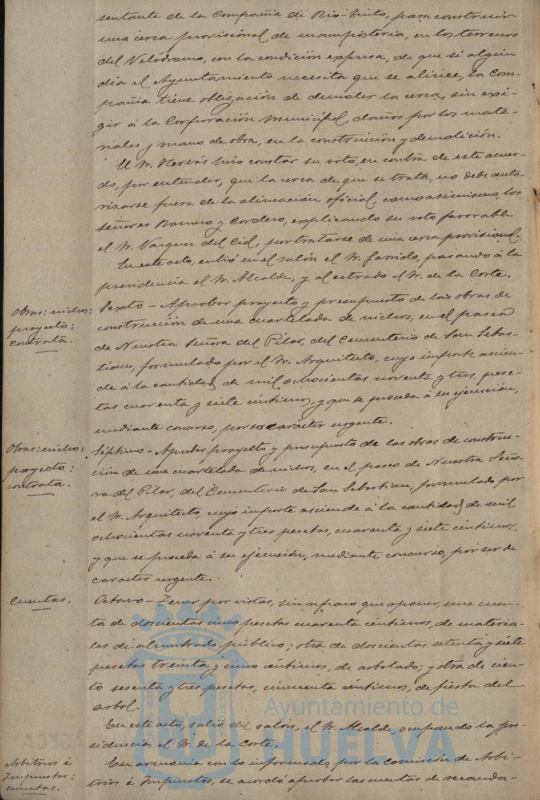 sentante de la Compañía de Rio-Tinto, para construir
una cerca provisional de mampostería, en los terrenos
del Velódromo, con la condición expresa, de que si algun
dia el Ayuntamiento necesita que se alinee, la Com-
pañia tiene obligación de demoler la cerca, sin exi-
gir á la Corporación Municipal, daños por los mate-
riales y mano de obra, en la construcción y demolición.
El Sr. Hervás hizo constar su voto, en contra de este acuer-
do, por entender, que la cerca de que se trata, no debe auto-
rizarse fuera de la alineación oficial, como asimismo, los
señores Romero y Cordero, explicando su voto favorable
el Sr. Vazquez del Cid, por tratarse de una cerca provisional.
En este acto, entró en el salón el Sr. Garrido, pasando á la
presidencia el Sr. Alcalde, y al estrado el Sr. de la Corte.
Obras: nichos:
proyecto:
contrata.
Sexto - Aprobar proyecto y presupuesto de las obras de
construcción de una cuartelada de nichos, en el paseo
de Nuestra Señora del Pilar, del Cementerio de San Sebas-
tian, formulado por el Sr. Arquitecto, cuyo importe ascien-
de á la cantidad de mil ochocientas noventa y tres, pese-
tas cuarenta y siete céntimos, y que se proceda á su ejecución,
mediante concurso, por su caracter urgente.
Obras: nichos:
proyecto:
contrata.
Séptimo - Aprobar proyecto y presupuesto de las obras de construc-
ción de una cuartelada de nichos, en el paseo de Nuestra Seño-
ra del Pilar, del Cementerio de San Sebastian, formulado por
el Sr. Arquitecto, cuyo importe asciende á la cantidad de mil
ochocientas noventa y tres pesetas, cuarenta y siete céntimos,
y que se proceda á su ejecución, mediante concurso, por ser de
caracter urgente.
Cuentas.
Octavo - Tener por vistas, sin reparo que oponer, una cuen-
ta de doscientas cinco pesetas cuarenta céntimos, de materia-
les de alumbrado público; otra de doscientas setenta y siete
pesetas treinta y cinco céntimos, de arbolado; y otra de cien-
to sesenta y tres pesetas, cincuenta céntimos, de fiesta del
arbol.
En este acto, salió del salón, el Sr. Alcalde, ocupando la pre-
sidencia el Sr. de la Corte.
Arbitrios é
Impuestos:
cuentas.
En armonia con lo informado, por la Comisión de Arbi-
trios é Impuestos, se acordó aprobar las cuentas de recauda-
Ayuntamiento de
HUELVA